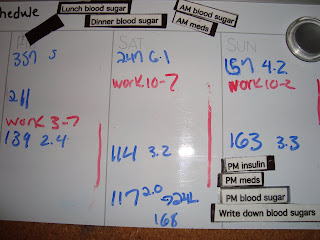 hedule
Lunch blood sugar
AM blood sugar
Dinner blood sugar
AM meds
SAT
SUN
357 5
247 6.1
157 4.2
work 10-7
work 10-2
211
work 3-7
139 2.4
114 3.2
163 3.3
PM insulin
PM meds
117 2.0
PM blood sugar
168
Write down blood sugars